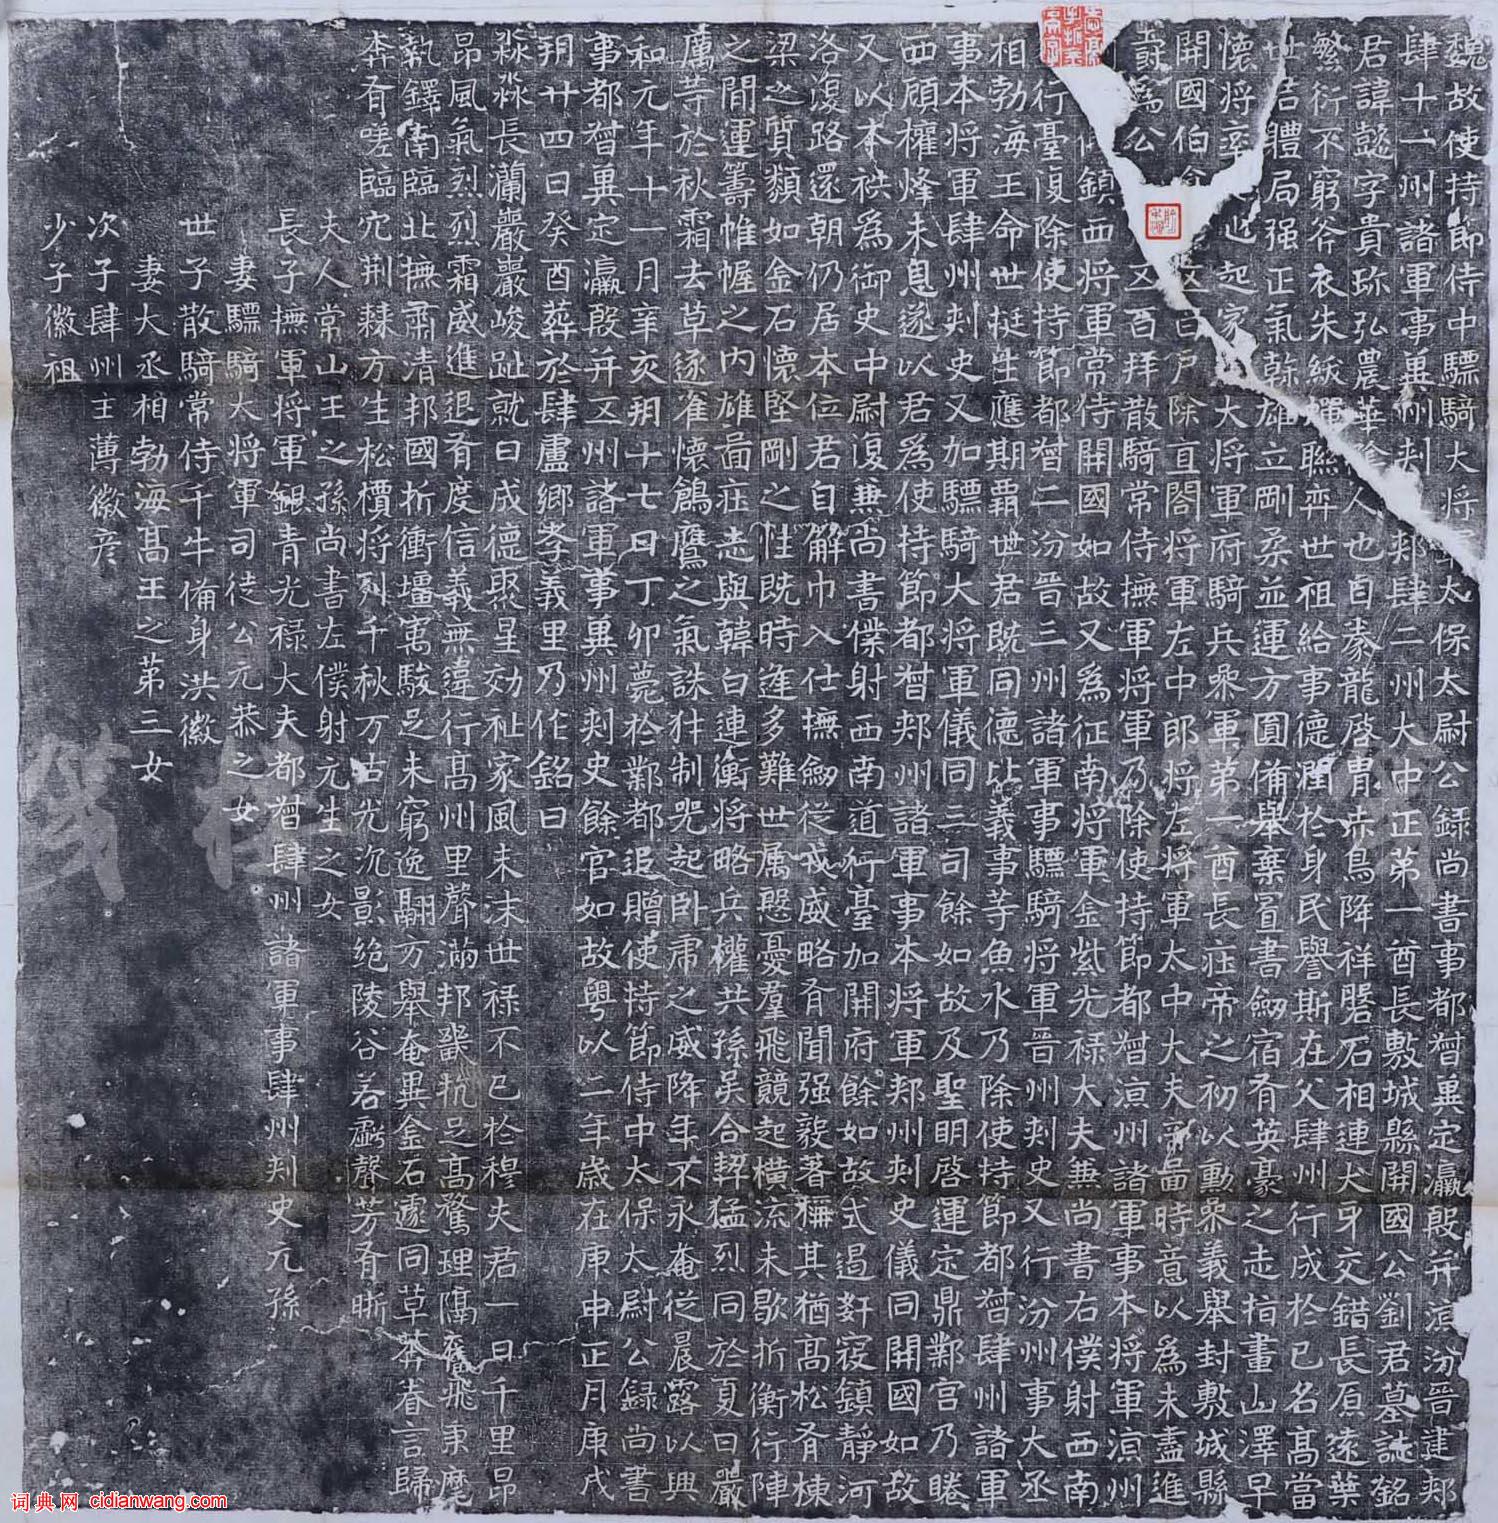 魏故使持節侍中驃騎大將太保太尉公錄尚書事都督冀定瀛殷并涼汾晉建郟
肆十一州諸軍事冀州刺郟肆二州大中正第一酋長敷城縣開國公劉君墓誌銘
君諱懿字貴珍弘農華陰人也自豢龍啓胄赤烏降祥磐石相連犬牙交錯長原遠葉
繁衍不窮斧衣朱紱蟬聯弈世祖給事德潤於身民譽斯在父肆州行成於己名高當
世君體局强正氣幹雄立剛柔並運方圓備舉棄置書劒宿有英豪之志指畫山澤早
懷將率心起家大將軍府騎兵參軍第一酋長莊帝之初以勳參義舉封敷城縣
開國伯食五百戶除直閤將軍左中郎將左將軍太中大夫帝啚時意以爲未盡進
封爲公五百拜散騎常侍撫軍將軍乃除使持節都督涼州諸軍事本將軍涼州
鎮西將軍常侍開國如故又爲征南將軍金紫光祿大夫兼尚書右僕射西南
行臺復除使持節都督二汾晉三州諸軍事驃騎將軍晉州刺史又行汾州事大丞
相勃海王命世挺生應期霸世君既同德比義事等魚水乃除使持節都督肆州諸軍
事本將軍肆州刺史又加驃騎大將軍儀同三司餘如故及聖明啓運定鼎鄴宮乃睠
西顧權烽未息遂以君爲使持節都督郟州諸軍事本將軍郟州刺史儀同開國如故
又以本秩爲御史中尉復兼尚書僕射西南道行臺加開府餘如故式遏姧寇鎮靜河
洛復路還朝仍居本位君自解巾入仕撫劒從戎威略有聞强毅著稱其猶高松有棟
梁之質類如金石懷堅剛之性既時逢多難世属慇憂羣飛競起橫流未歇折衝行陣
之閒運籌帷幄之內雄啚庄志與韓白連衡將略兵權共孫吴合契猛烈同於夏日嚴
厲等於秋霜去草逐雀懷鷂鷹之氣誅犲制兕起臥虎之威降年不永奄從晨露以興
和元年十一月辛亥朔十七日丁卯薨於鄴都追贈使持節侍中太保太尉公錄尚書
事都督冀定瀛殷并五州諸軍事冀州刺史餘官如故粵以二年歲在庚申正月庚戌
朔廿四日癸酉葬於肆盧鄉孝義里乃作銘曰
淼淼長瀾巖巖峻趾就日成德聚星効祉家風未沫世祿不已於穆夫君一日千里昂
昂風氣烈烈霜威進退有度信義無違行高州里聲滿邦畿抗足高騖理隔奮飛秉麾
執鐸南臨北撫肅清邦國折衝壃寓駿足未窮逸翮方舉奄異金石遽同草莽眷言歸
莽有嗟臨穴荆棘方生松檟將列千秋万古光沉景絕陵谷若虧聲芳有晣
夫人常山王之孫尚書左僕射元生之女
長子撫軍將軍銀青光祿大夫都督肆州諸軍事肆州刺史元孫
妻驃騎大將軍司徒公元恭之女
世子散騎常侍千牛備身洪徽
妻大丞相勃海高王之第三女
次子肆州主薄徽彦
少子徽祖
词典网 cidianwang.com